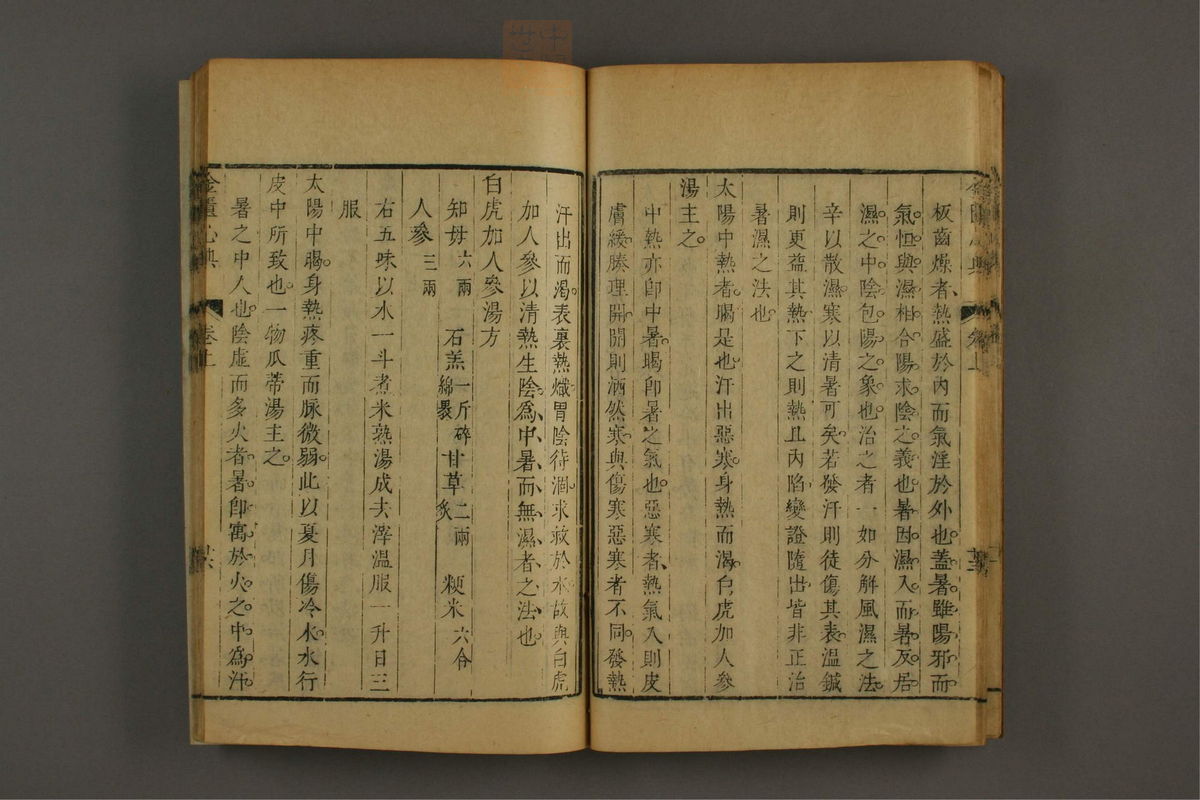 板齒燥者熱盛於內而氣淫於外也蓋暑雖陽邪而
氣恒與濕相合陽求陰之義也暑因濕入而暑反居
濕之中陰包陽之象也治之者一如分解風濕之法
辛以散濕寒以清暑可矣若發汗則徒傷其表溫鍼
則更益其熱下之則熱且內陷變證隨出皆非正治
暑濕之法也
太陽中熱者暍是也汗出惡寒身熱而渴白虎加人參
湯主之
中熱亦卽中暑暍卽暑之氣也惡寒者熱氣入則皮
膚緩腠理開開則洒然寒與傷寒惡寒者不同發熱
汗出而渴表裏熱熾胃陰待涸求救於水故與白虎
加人參以清熱生陰爲中暑而無濕者之法也
白虎加人參湯方
知母六兩 石羔一斤碎綿裹 甘草二兩炙 粳米六合
人參三兩
右五味以水一斗煮米熟湯成去滓溫服一升日三
服
太陽中暍身熱疼重而脉微弱此以夏月傷冷水水行
皮中所致也一物瓜蒂湯主之
暑之中人也陰虛而多火者暑卽寓於火之中爲汗
金匱心典 卷上